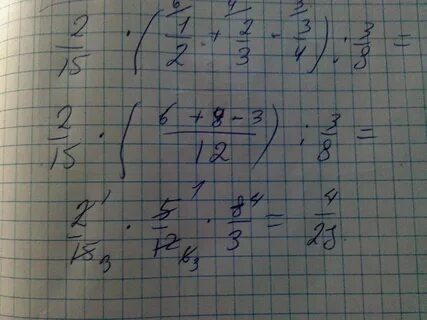 2/15 · (6/ 1/2 + 4/ 2/3 · 3/ 3/4) : 3/8 =
2/15 · ((6 + 8 - 3)/12) : 3/8 =
2¹/15₃ · 5¹/12₆₃ · 8⁴/3 = 4/